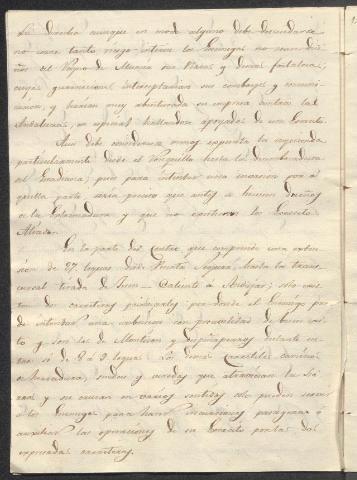 La derecha aunque en modo alguno debe descuidarse
no corre tanto riesgo interin los Enemigos no sean due-
ños del Reyno de Murcia sus Plazas y demas fortalezas,
cuyas guarniciones interceptarian sus comboyes y comuni-
cacion, y harian muy abenturada su empresa contra las
Andalucias, en especial hallandose apoyadas de un Exercito.
Aun debe considerarse menos expuesta la izquierda
particularmente desde el Ronquillo hasta la desembocadura
del Guadiana, pues para intentar una incursion por a-
quella parte seria preciso que antes se hiciesen dueños
de la Estremadura y que no existieran los Exercitos
Aliados.
En la parte del Centro que comprende una exten-
sion de 27 leguas desde Puerta Segura, hasta la trans-
versal tirada de Fuen-Caliente á Andujar, solo exis-
ten dos carreteras principales por donde el Enemigo pue-
de intentar una imbasion con provabilidad de buen exi-
to y son las de Montizon y Despeñaperros distante en-
tre si de 8 á 9 leguas. Los demas caminos
de herradura, sendas y veredas que atraviesan la Sie-
rra y se cruzan en varios sentidos solo pueden servir
á los Enemigos para hacer incursiones pasageras ó
auxiliar las operaciones de su Exercito por las dos
expresadas carreteras.